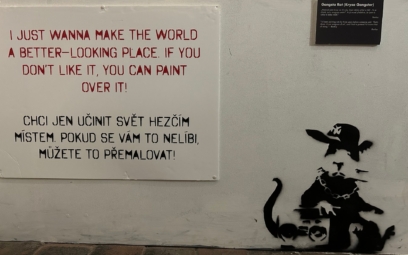 I JUST WANNA MAKE THE WORLD
A BETTER-LOOKING PLACE. IF YOU
DON'T LIKE IT, YOU CAN PAINT
OVER IT!
CHCI JEN UČINIT SVĚT HEZČÍM
MÍSTEM. POKUD SE VÁM TO NELÍBI,
MŮŽETE TO PŘEMALOVAT!
Gangsta Rat (Krysa Gangster)